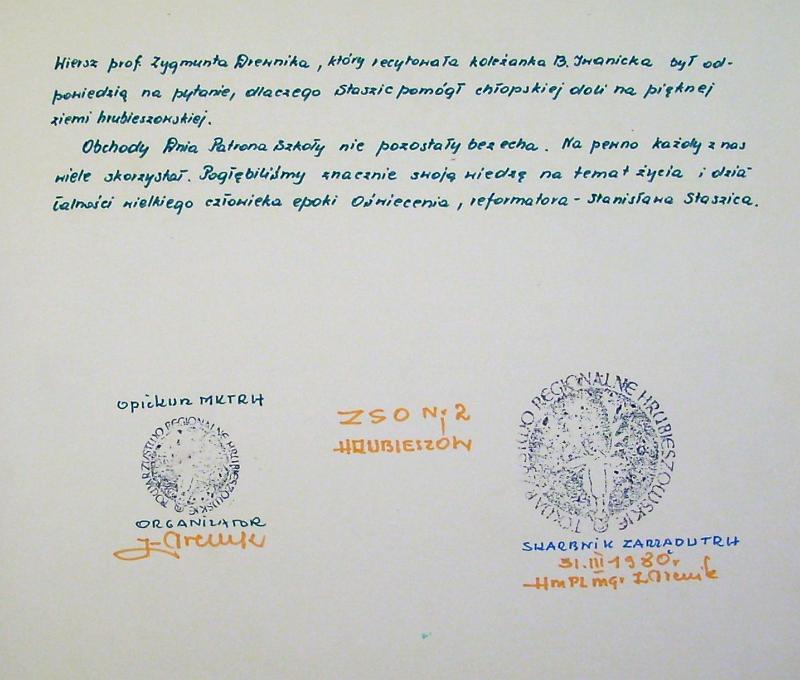 Wiersz prof. Zygmunta Drewnika, który recytowała koleżanka B. Iwanicka był od-
powiedzią na pytanie, dlaczego Staszic pomógł chłopskiej doli na pięknej
ziemi hrubieszowskiej.
Obchody Dnia Patrona Szkoły nie pozostały bez echa. Na pewno każdy z nas
wiele skorzystał. Pogłębiliśmy znacznie swoją wiedzę na temat życia i dzia-
łalności wielkiego człowieka epoki Oświecenia, reformatora - Stanisława Staszica.
Opiekun MKTRH
TOWARZYSTWO REGIONALNE HRUBIESZOWSKIE
ORGANIZATOR
ZSO Nr 2
HRUBIESZÓW
TOWARZYSTWO REGIONALNE HRUBIESZOWSKIE
SKARBNIK ZARZĄDU TRH
31.III 1980r
Hm PL mgr